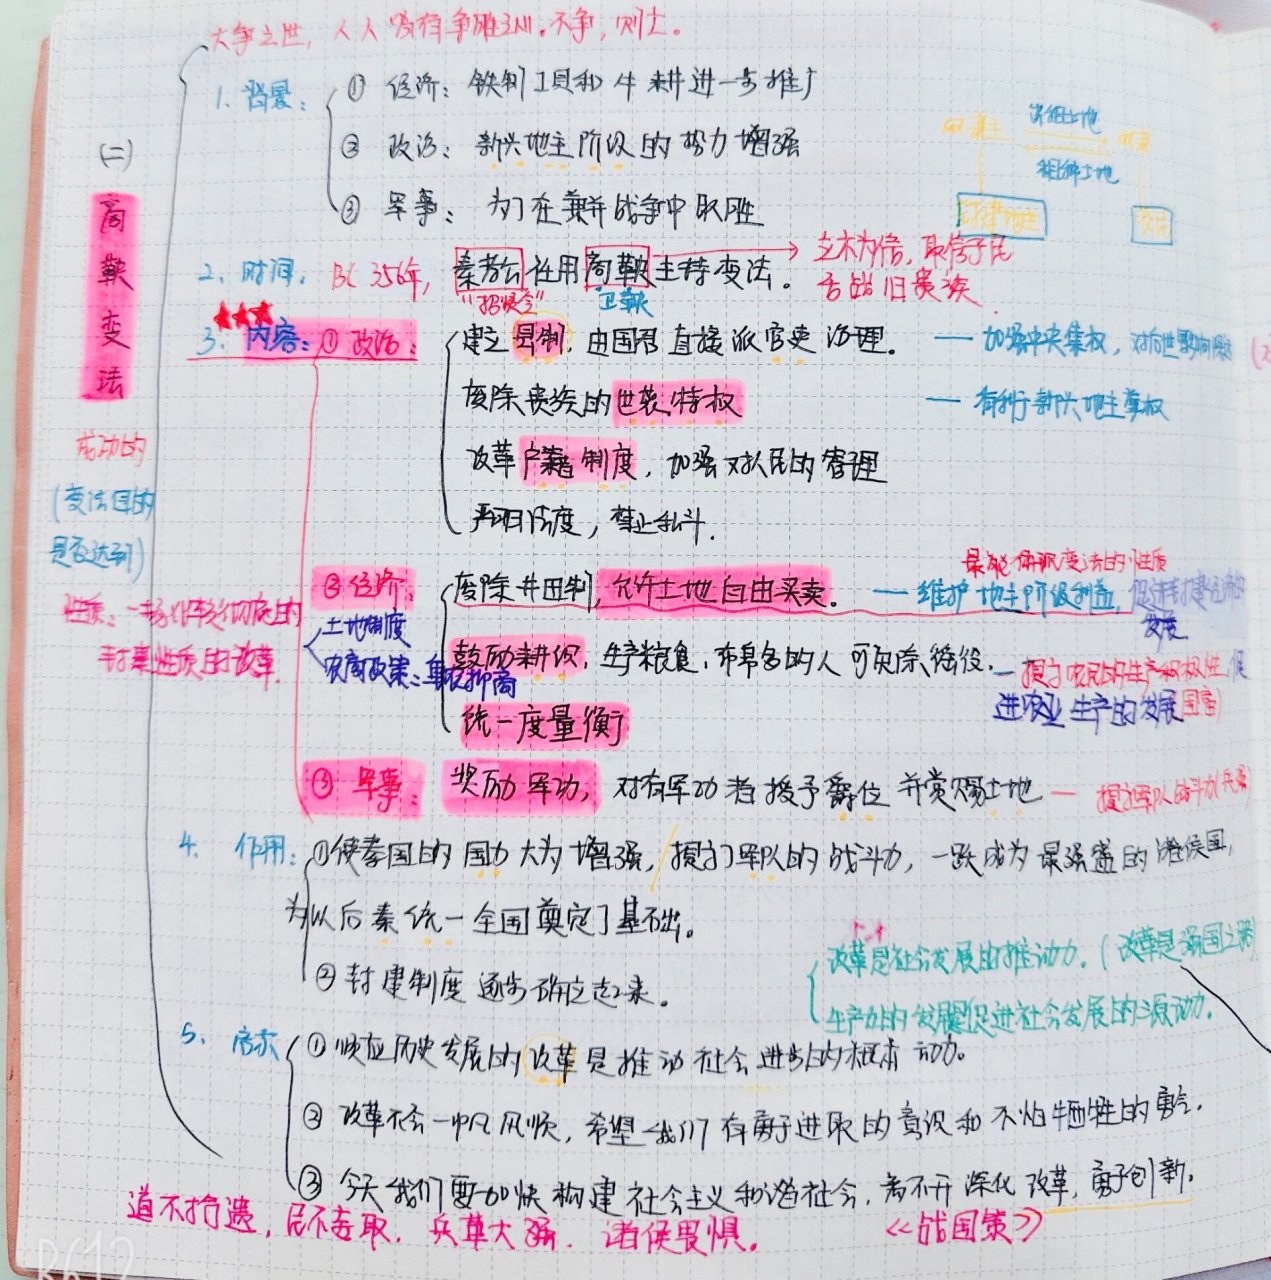 大争之世，人人皆有争雄之心。不争，则亡。
1. 背景：① 经济：铁制工具和牛耕进一步推广
② 政治：新兴地主阶级的势力增强
③ 军事：为了在兼并战争中取胜
出租土地
租种土地
封建地主
农民
(二)
商鞅变法
2. 时间：BC 356年，秦孝公任用商鞅主持变法。
"招贤令"
卫鞅
立木为信，取信于民
舌战旧贵族
3. 内容：① 政治：建立县制，由国君直接派官吏治理。— 加强中央集权，对后世影响深远
废除贵族的世袭特权 — 有利于新兴地主掌权
改革户籍制度，加强对人民的管理
严明法度，禁止私斗.
成功的
(变法目的
是否达到)
性质：一场比较彻底的
封建性质的改革.
最能体现变法的性质
② 经济：废除井田制，允许土地自由买卖。— 维护地主阶级利益，
发展
土地制度
农商政策：重农抑商
鼓励耕织，生产粮食、布帛多的人可免除徭役. — 提高农民的生产积极性，促
进农业生产的发展(国富)
统一度量衡
③ 军事：奖励军功，对有军功者授予爵位并赏赐土地 — 提高军队战斗力(兵强)
4. 作用：①使秦国的国力大为增强，提高了军队的战斗力，一跃成为最强盛的诸侯国，
为以后秦统一全国奠定了基础。
② 封建制度逐步确立起来。
改革是社会发展的推动力.(改革是强国之路)
生产力的发展是促进社会发展的源动力.
5. 启示 ① 顺应历史发展的改革是推动社会进步的根本动力。
② 改革不会一帆风顺，希望我们有勇于进取的意识和不怕牺牲的勇气.
③ 今天我们要加快构建社会主义和谐社会，离不开深化改革，勇于创新.
道不拾遗，民不妄取，兵革大强，诸侯畏惧。 《战国策》